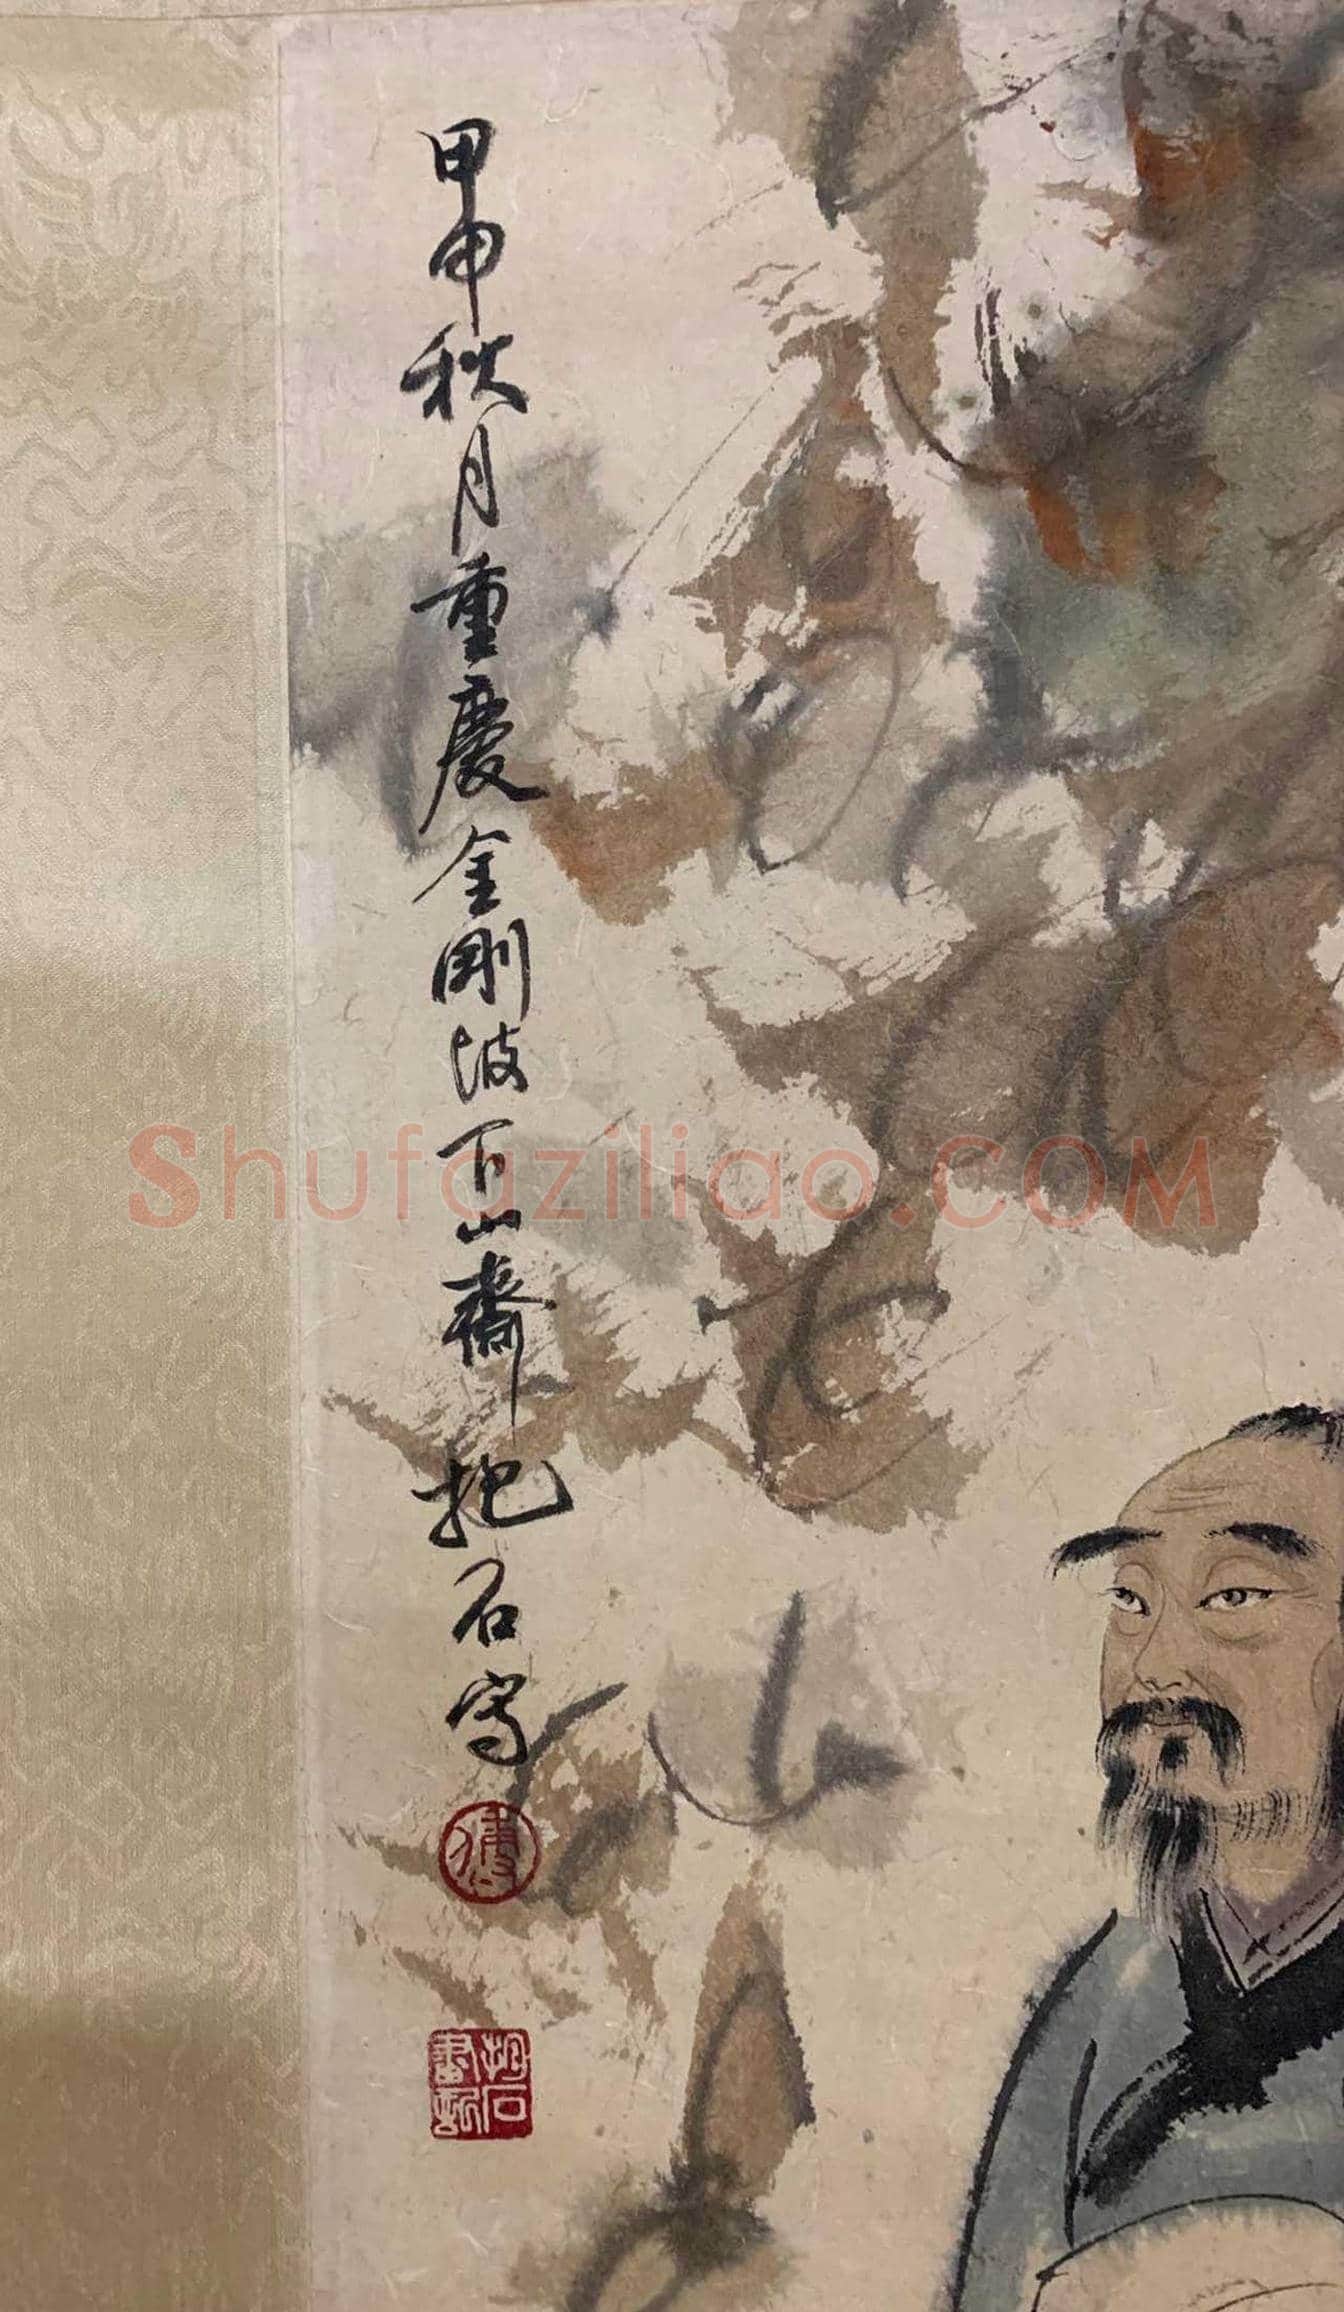 甲申秋月重慶金剛坡下山齋抱石寫
傅
抱石畫記
Shufaziliao.COM